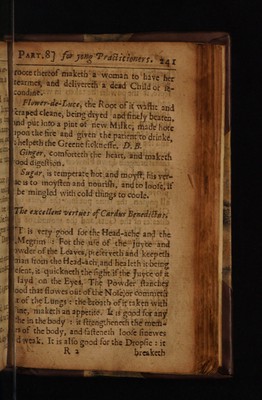 PART.8] for yong Practitioners. 241
roote thereof maketh a woman to have her
tearmes, and delivereth a dead Child or se-
condine.
Flower-de-Luce, the Root of it washt and
scraped cleane, being dryed and finely beaten,
and put into a pint of new Milke, made hote
upon the fire and given the patient to drinke,
helpeth the Greene sicknesse, D. B.
Ginger, comforteth the heart, and maketh
good digestion.
Sugar, is temperate hot and moyst, his ver-
is to moysten and nourish, and to loose, if
be mingled with cold things to coole.
The excellent vertues of Cardus Benedictus.
IT is very good for the Head-ache and the
Megrim : For the use of the Juyce and
powder of the Leaves, preserveth and keepeth
man from the Head-ach, and healeth it being
present, it quickneth the sight if the Juyce of it
layd on the Eyes. The Powder stancheth
blood that flowes out of the Nose, or commeth
out of the Lungs : the broath of it taken with
wine, maketh an appetite. It is good for any
ache in the body : it strengtheneth the mem-
of the body, and fasteneth loose sinewes
and weak. It is also good for the Dropsie : it
R 2 breaketh